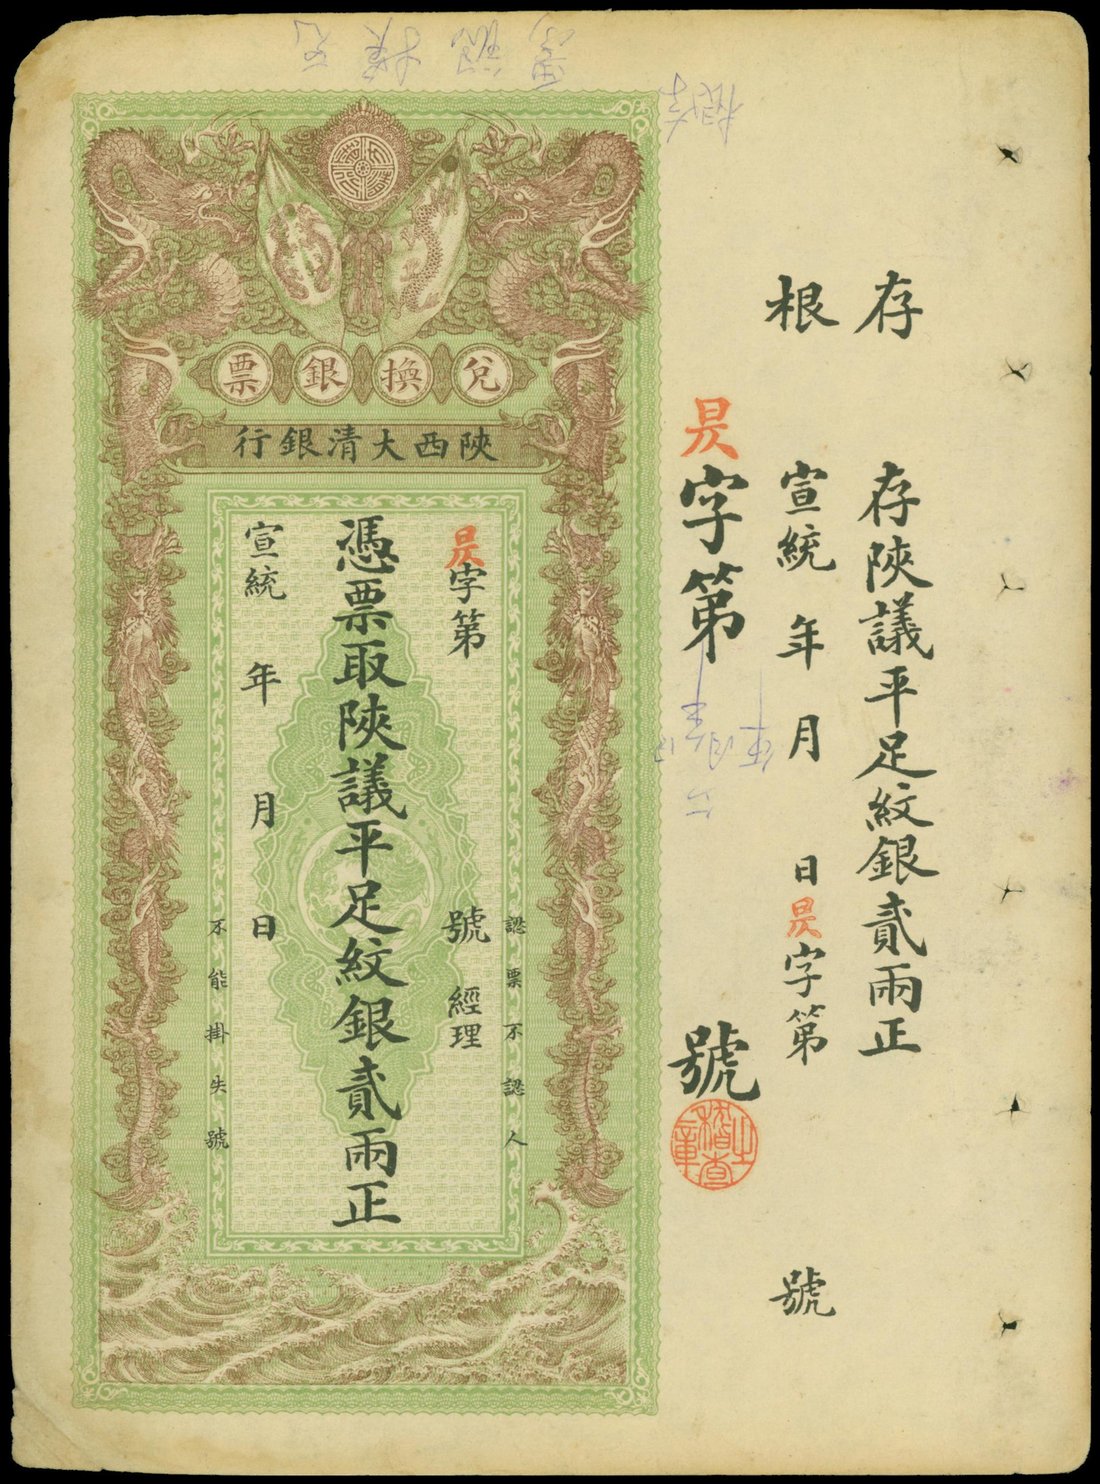 兌換銀票
陝西大清銀行
認票不認人
昃字第 號 經理
憑票取陝議平足紋銀貳兩正
宣統 年 月 日
不能掛失號
存根
存陝議平足紋銀貳兩正
宣統 年 月 日昃字第 號
昃字第 號
稽查之章